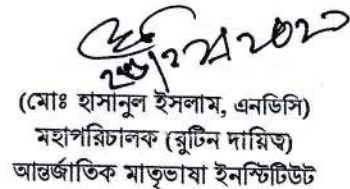 (মোঃ হাসানুল ইসলাম, এনডিসি)
মহাপরিচালক (রুটিন দায়িত্ব)
আন্তর্জাতিক মাতৃভাষা ইনস্টিটিউট